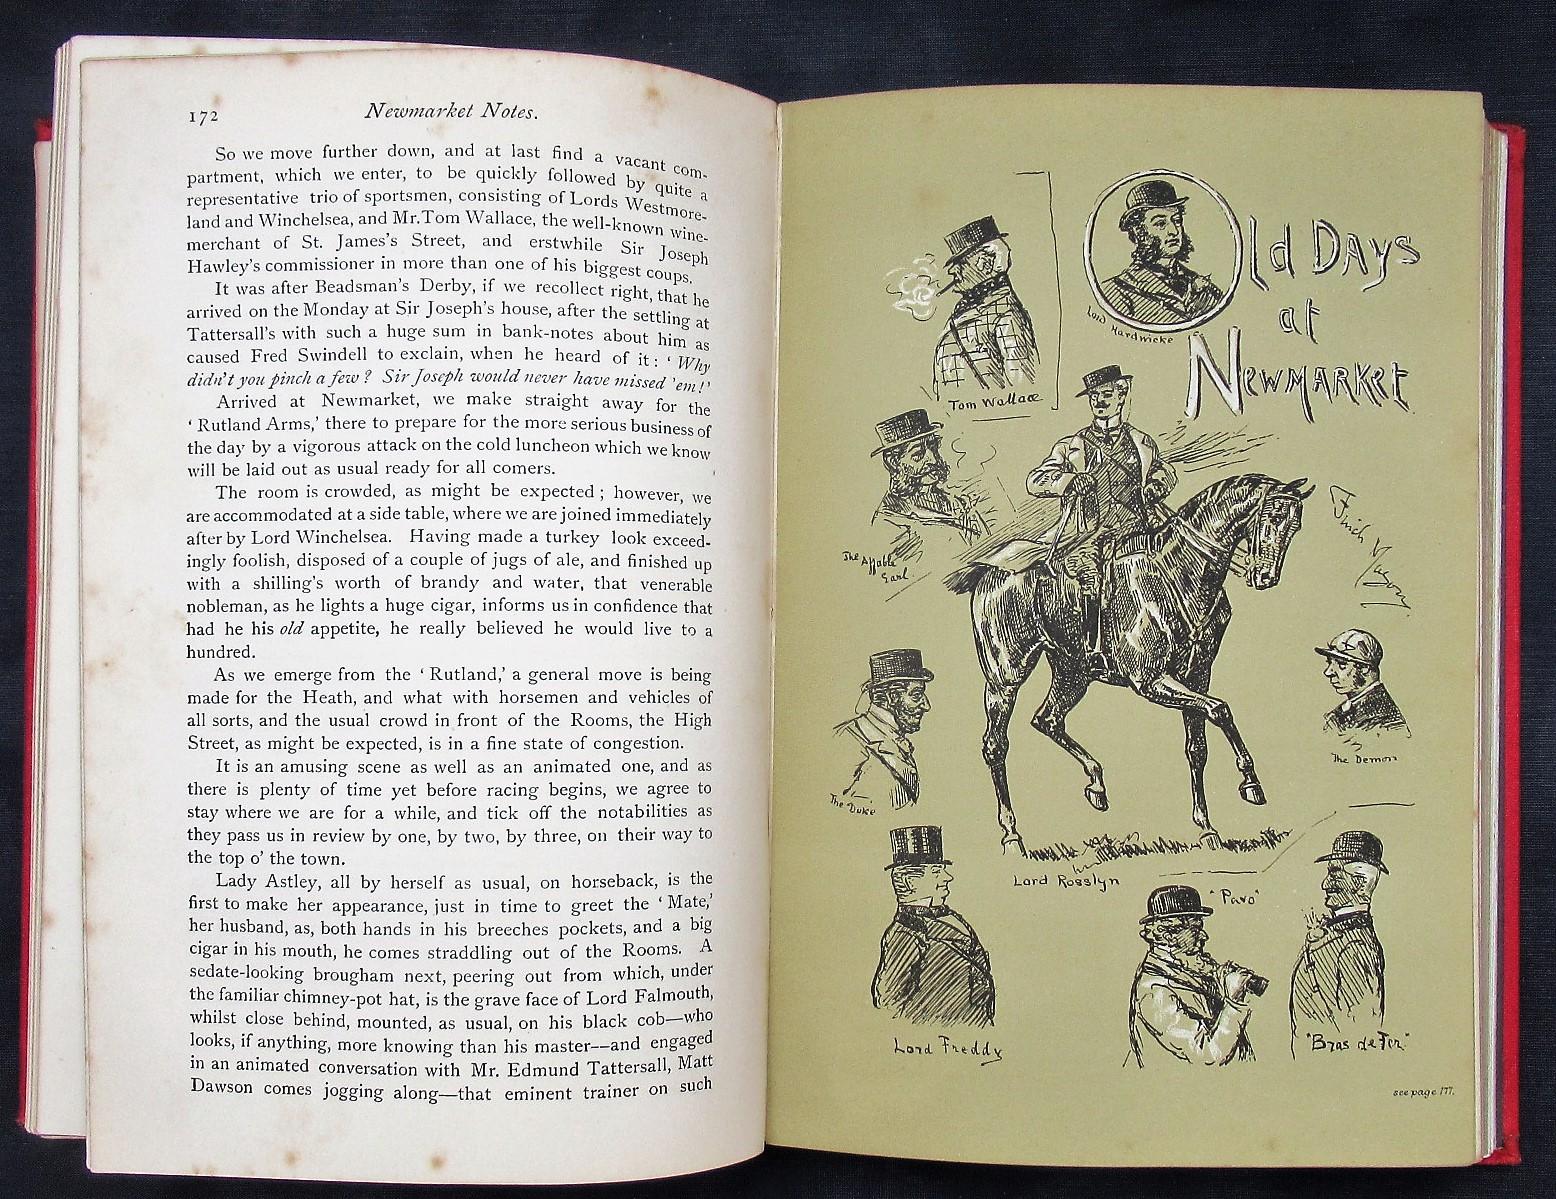 172
Newmarket Notes.
So we move further down, and at last find a vacant com-
partment, which we enter, to be quickly followed by quite a
representative trio of sportsmen, consisting of Lords Westmore-
land and Winchelsea, and Mr. Tom Wallace, the well-known wine-
merchant of St. James's Street, and erstwhile Sir Joseph
Hawley's commissioner in more than one of his biggest coups.
It was after Beadsman's Derby, if we recollect right, that he
arrived on the Monday at Sir Joseph's house, after the settling at
Tattersall's with such a huge sum in bank-notes about him as
caused Fred Swindell to exclain, when he heard of it : ‘ Why
didn't you pinch a few ? Sir Joseph would never have missed 'em !’
Arrived at Newmarket, we make straight away for the
‘ Rutland Arms,’ there to prepare for the more serious business of
the day by a vigorous attack on the cold luncheon which we know
will be laid out as usual ready for all comers.
The room is crowded, as might be expected ; however, we
are accommodated at a side table, where we are joined immediately
after by Lord Winchelsea. Having made a turkey look exceed-
ingly foolish, disposed of a couple of jugs of ale, and finished up
with a shilling's worth of brandy and water, that venerable
nobleman, as he lights a huge cigar, informs us in confidence that
had he his old appetite, he really believed he would live to a
hundred.
As we emerge from the ‘ Rutland,’ a general move is being
made for the Heath, and what with horsemen and vehicles of
all sorts, and the usual crowd in front of the Rooms, the High
Street, as might be expected, is in a fine state of congestion.
It is an amusing scene as well as an animated one, and as
there is plenty of time yet before racing begins, we agree to
stay where we are for a while, and tick off the notabilities as
they pass us in review by one, by two, by three, on their way to
the top o' the town.
Lady Astley, all by herself as usual, on horseback, is the
first to make her appearance, just in time to greet the ‘ Mate,’
her husband, as, both hands in his breeches pockets, and a big
cigar in his mouth, he comes straddling out of the Rooms. A
sedate-looking brougham next, peering out from which, under
the familiar chimney-pot hat, is the grave face of Lord Falmouth,
whilst close behind, mounted, as usual, on his black cob—who
looks, if anything, more knowing than his master—and engaged
in an animated conversation with Mr. Edmund Tattersall, Matt
Dawson comes jogging along—that eminent trainer on such
Old Days
at
Newmarket
Lord Hardwicke
Tom Wallace
The Affable
Earl.
Finch Mason
The Duke
The Demon
Lord Rosslyn
"Pavo"
Lord Freddy
"Bras de Fer."
see page 177.